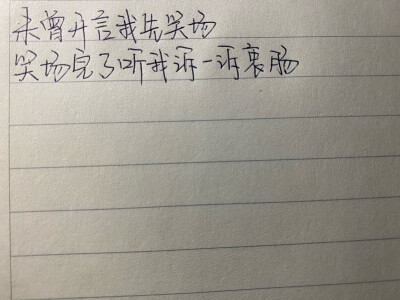 未曾开言我先哭场
哭场完了听我诉一诉衷肠